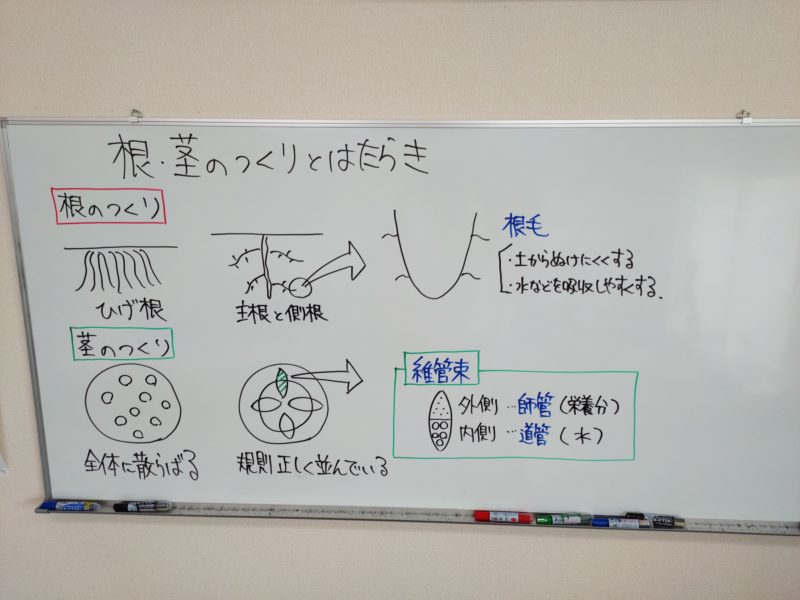 根・茎のつくりとはたらき
根のつくり
ひげ根
主根と側根
根毛
・土からぬけにくくする
・水などを吸収しやすくする.
茎のつくり
全体に散らばる
規則正しく並んでいる
維管束
外側…師管(栄養分)
内側…道管(水)